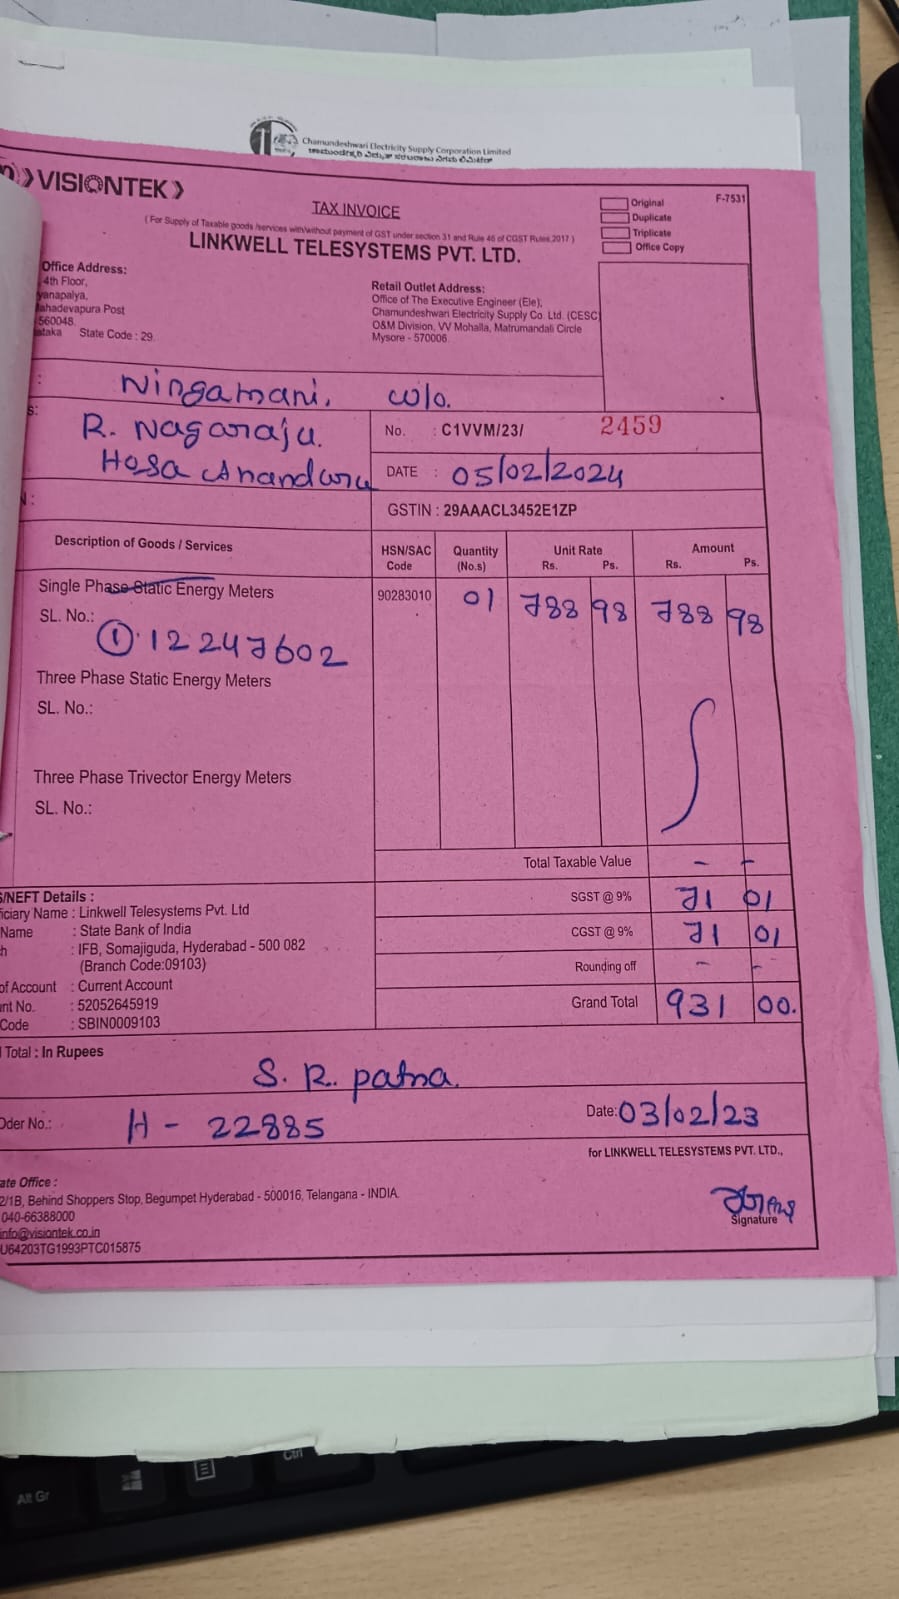 Chamundeshwari Electricity Supply Corporation Limited
ಚಾಮುಂಡೇಶ್ವರಿ ವಿದ್ಯುತ್ ಸರಬರಾಜು ನಿಗಮ ಲಿಮಿಟೆಡ್
VISIONTEK
F-7531
TAX INVOICE
Original
Duplicate
Triplicate
Office Copy
( For Supply of Taxable goods /services with/without payment of GST under section 31 and Rule 46 of CGST Rules,2017 )
LINKWELL TELESYSTEMS PVT. LTD.
Office Address:
4th Floor,
yanapalya,
ahadevapura Post
560048,
ataka State Code : 29.
Retail Outlet Address:
Office of The Executive Engineer (Ele),
Chamundeshwari Electricity Supply Co. Ltd. (CESC)
O&M Division, VV Mohalla, Matrumandali Circle
Mysore - 570006.
Ningamani, w/o.
R. Nagaraju.
Hosa Ananduru
No. : C1VVM/23/ 2459
DATE : 05/02/2024
GSTIN : 29AAACL3452E1ZP
Description of Goods / Services
HSN/SAC Code
Quantity (No.s)
Unit Rate Rs. Ps.
Amount Rs. Ps.
Single Phase Static Energy Meters 90283010 01 788 98 788 98
SL. No.:
① 12247602
Three Phase Static Energy Meters
SL. No.:
Three Phase Trivector Energy Meters
SL. No.:
Total Taxable Value - -
SGST @ 9% 71 01
CGST @ 9% 71 01
Rounding off - -
Grand Total 931 00.
S/NEFT Details :
ficiary Name : Linkwell Telesystems Pvt. Ltd
Name : State Bank of India
h : IFB, Somajiguda, Hyderabad - 500 082
(Branch Code:09103)
of Account : Current Account
unt No. : 52052645919
Code : SBIN0009103
Total : In Rupees
S. R. patna.
Oder No.: H - 22885
Date: 03/02/23
for LINKWELL TELESYSTEMS PVT. LTD.,
ate Office :
2/1B, Behind Shoppers Stop, Begumpet Hyderabad - 500016, Telangana - INDIA.
040-66388000
info@visiontek.co.in
U64203TG1993PTC015875
Signature
Alt Gr
Ctrl